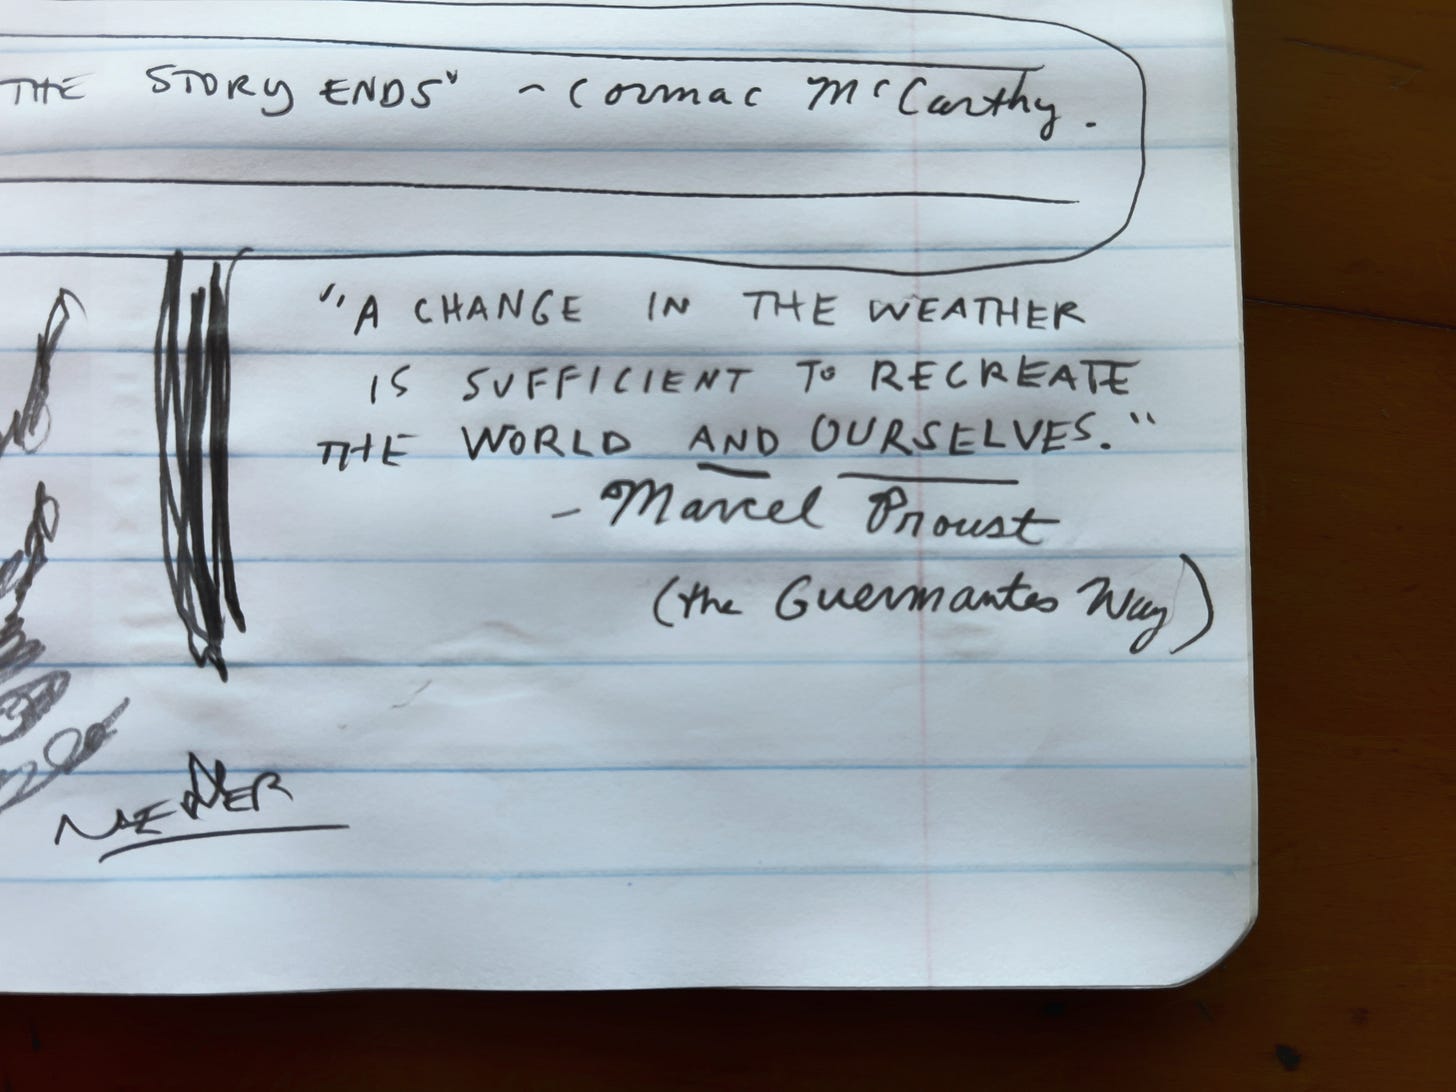 THE STORY ENDS" ~ Cormac McCarthy.
"A CHANGE IN THE WEATHER
IS SUFFICIENT TO RECREATE
THE WORLD AND OURSELVES."
- Marcel Proust
(the Guermantes Way)